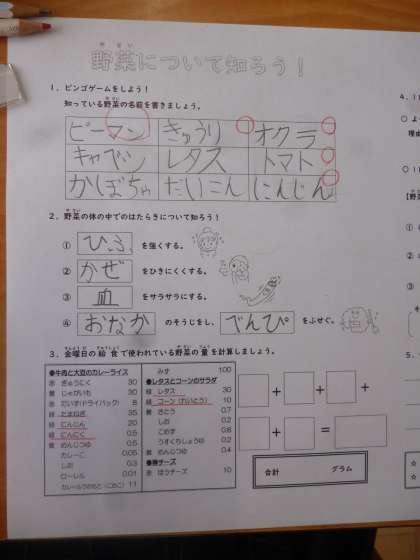 野菜について知ろう！
1．ビンゴゲームをしよう！
知っている野菜の名前を書きましょう。
ピーマン きゅうり オクラ
キャベツ レタス トマト
かぼちゃ だいこん にんじん
2．野菜の体の中でのはたらきについて知ろう！
① ひふ を強くする。
② かぜ をひきにくくする。
③ 血 をサラサラにする。
④ おなか のそうじをし、 べんぴ をふせぐ。
3．金曜日の給食で使われている野菜の量を計算しましょう。
●牛肉と大豆のカレーライス
赤 ぎゅうにく 30
黄 じゃがいも 30
赤 だいず(ドライパック) 8
緑 たまねぎ 35
緑 にんじん 20
緑 にんにく 0.5
黄 めんじつゆ 0.5
カレーこ 0.05
しお 0.3
ローレル 0.01
11
みず 100
●レタスとコーンのサラダ
緑 レタス 30
緑 コーン(れいとう) 10
黄 さとう 0.7
しお 0.2
こめす 0.8
うすくちしょうゆ 0.2
黄 めんじつゆ 0.4
チーズ
赤 チーズ 10
＋ ＋ ＋
＋ ＝
合計 グラム
4．
5．